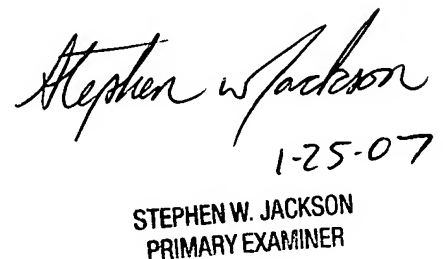 Stephen W Jackson
1-25-07
STEPHEN W. JACKSON
PRIMARY EXAMINER